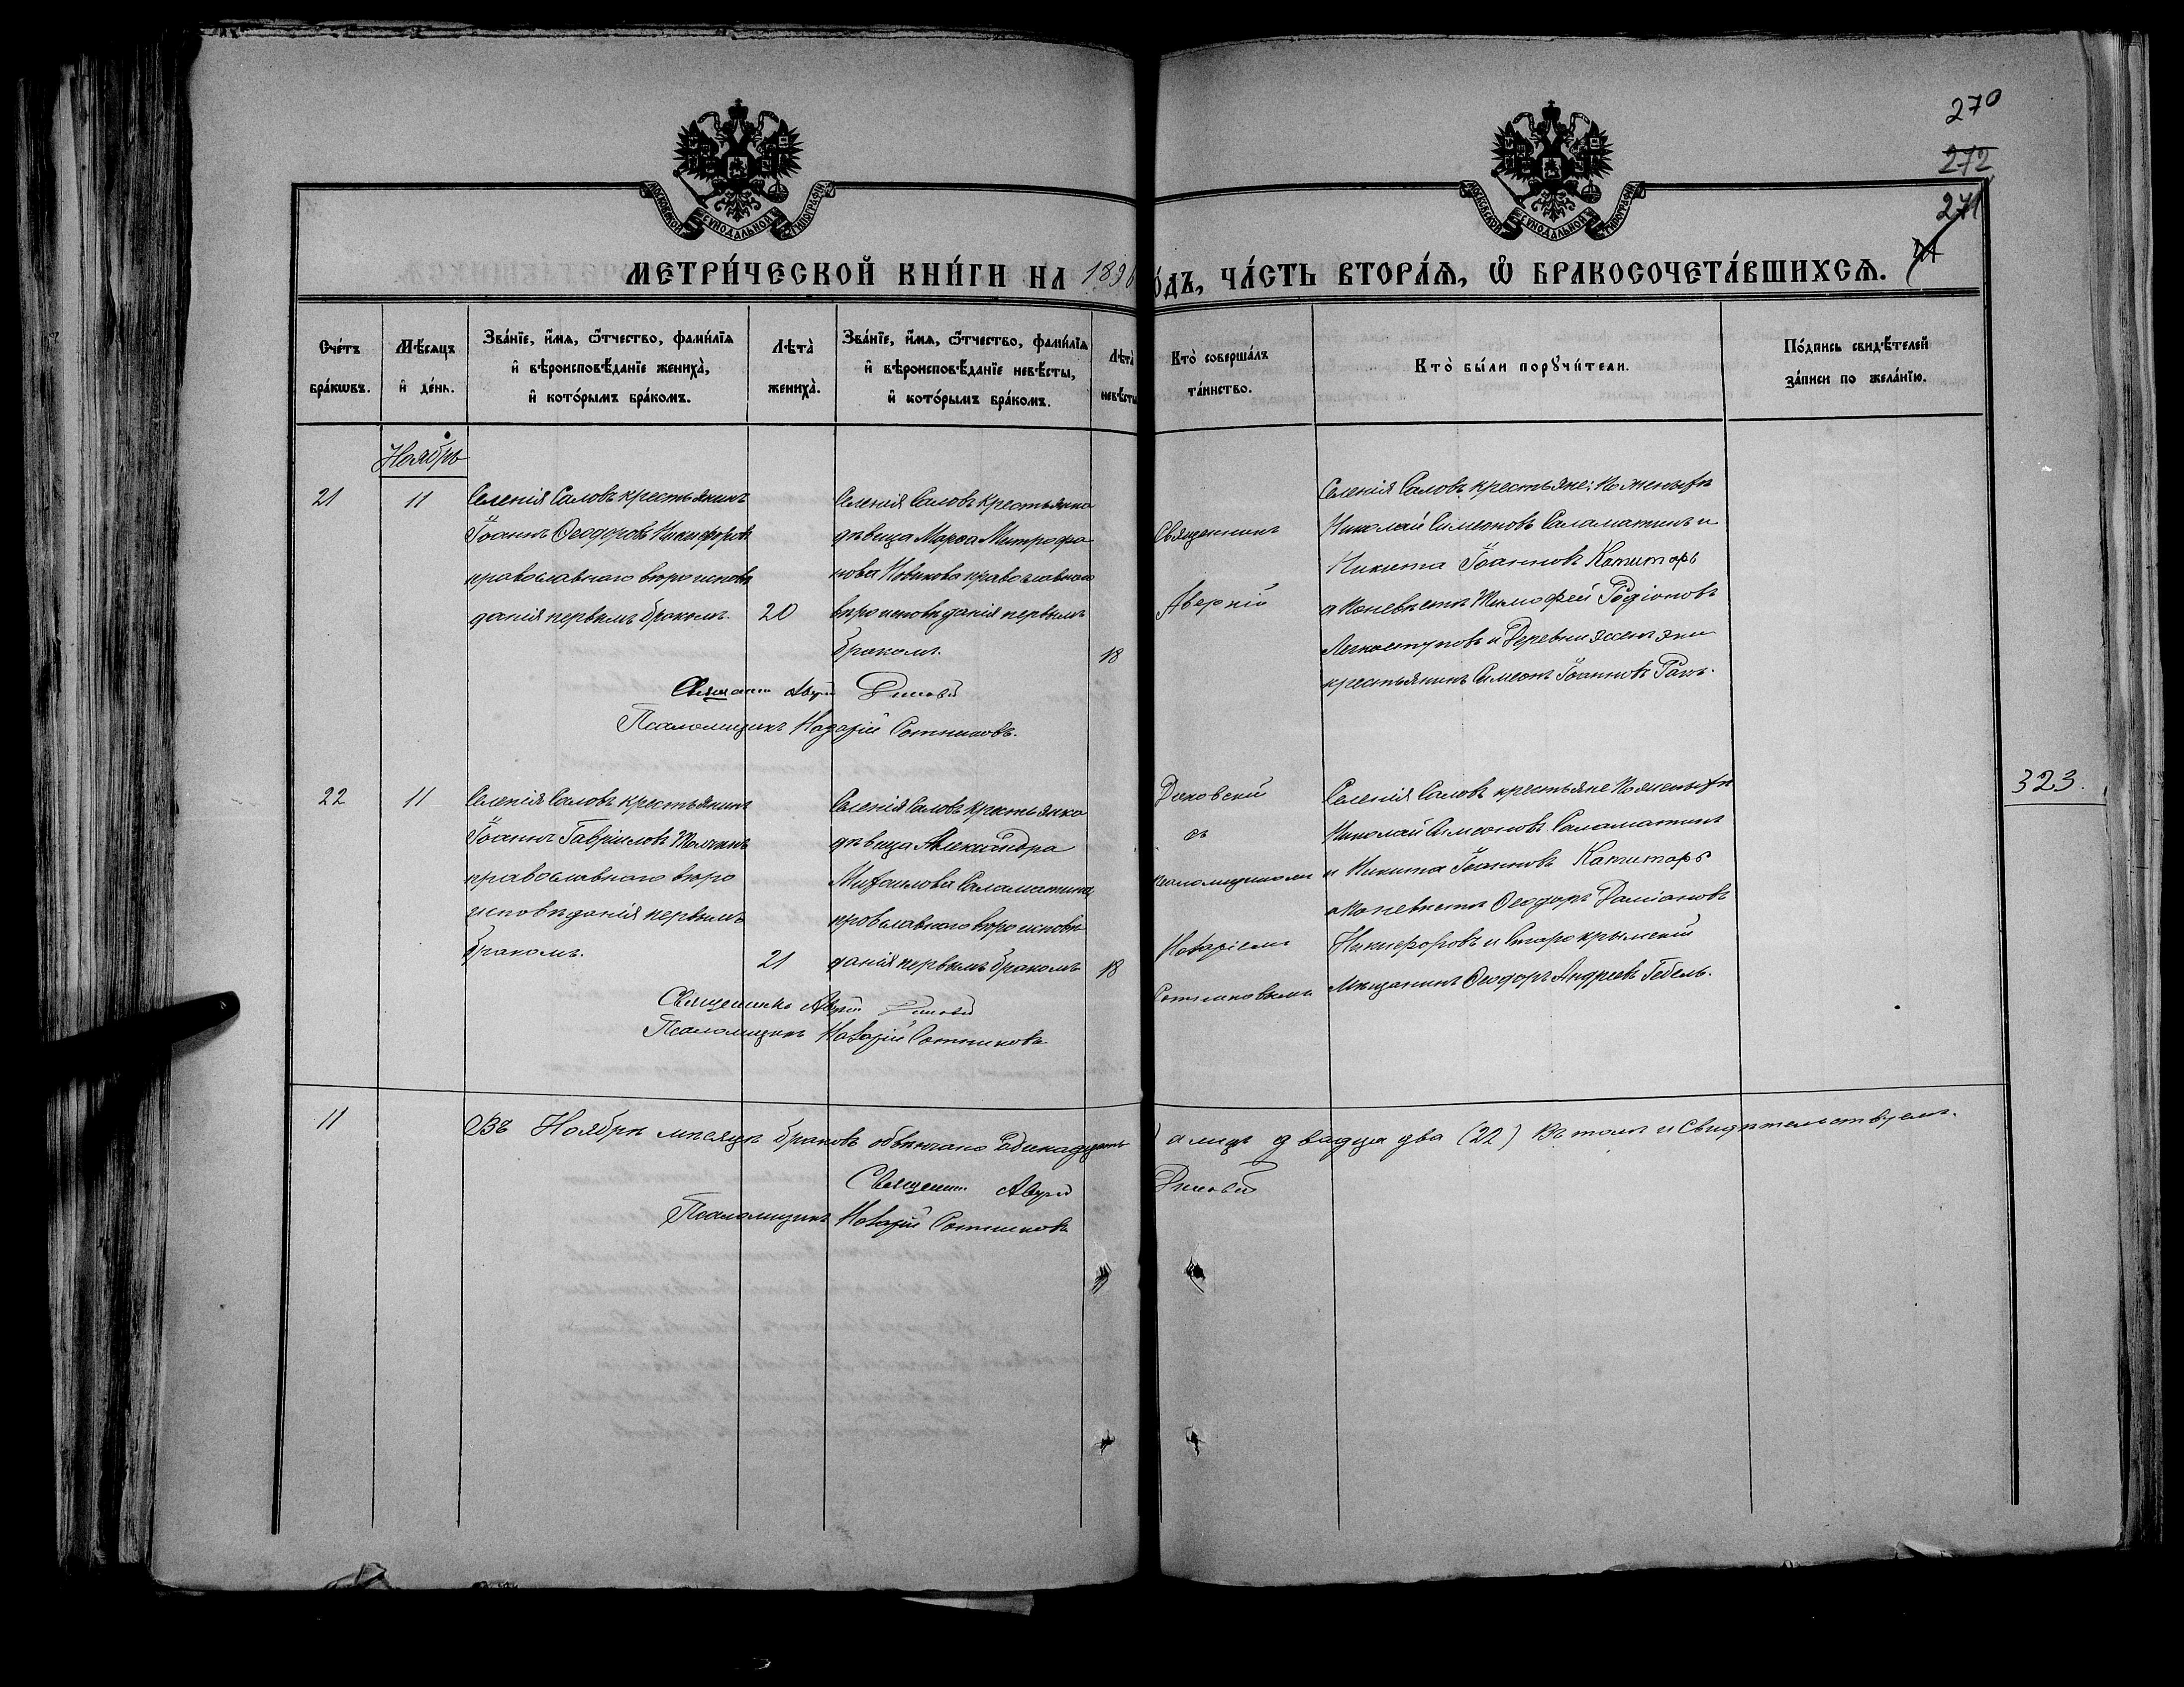 270
272
271
МОСКОВСКОЙ СѴНОДАЛЬНОЙ ТИПОГРАФІИ
МОСКОВСКОЙ СѴНОДАЛЬНОЙ ТИПОГРАФІИ
МЕТРИ́ЧЕСКОЙ КНИ́ГИ НА 189
О́ДЪ, ЧА́СТЬ ВТОРА́Ѧ, Ѿ БРАКОСОЧЕТА́ВШИХСѦ.
Сче́тъ бра́кѡвъ.
Мѣ́сѧцъ и҆ де́нь.
Зва́нїе, и҆́мѧ, ѻ҆́тчество, фами́лїѧ и҆ вѣроисповѣ́данїе жениха̀, и҆ кото́рымъ бра́комъ.
Лѣта̀ жениха̀.
Зва́нїе, и҆́мѧ, ѻ҆́тчество, фами́лїѧ и҆ вѣроисповѣ́данїе невѣ́сты, и҆ кото́рымъ бра́комъ.
Лѣта̀ невѣ́сты
Кто̀ соверша́лъ та́инство.
Кто̀ бы́ли порꙋчи́тели.
По́дпись свидѣ́телей за́писи по жела́нїю.
Ноябрь
21
11
Селенія Саловъ крестьянинъ
Іоаннъ Ѳеодоровъ Никифоровъ
православнаго вѣроисповѣ
данія первымъ бракомъ.
20
Селенія Саловъ крестьянка
дѣвица Марѳа Митрофа
нова Новикова православнаго
вѣроисповѣданія первымъ
бракомъ.
18
Священникъ
Аверкій
Селенія Саловъ крестьяне: по женихѣ
Николай Симеоновъ Саламатинъ и
Никита Іоанновъ Капитарь
а по невѣстѣ Тимофей Родіоновъ
Легкоступовъ и Деревни
крестьянинъ Симеонъ Іоанновъ
Псаломщикъ Назарій Сотниковъ.
22
11
Селенія Саловъ крестьянинъ
Іоаннъ Гавріиловъ
православнаго вѣро
исповѣданія первымъ
бракомъ.
21
Селенія Саловъ крестьянка
дѣвица Александра
Михаилова Саламатина
православнаго вѣроисповѣ
данія первымъ бракомъ
18
съ
псаломщикомъ
Назаріемъ
Сотниковымъ
Селенія Саловъ крестьяне по женихѣ
Николай Симеоновъ Саламатинъ
и Никита Іоанновъ Капитарь
а по невѣстѣ Ѳеодоръ Даміановъ
Никифоровъ и Старокрымскій
Мѣщанинъ Ѳеодоръ Андреевъ Гебель.
323.
Священникъ
Псаломщикъ Назарій Сотниковъ
11
Въ Ноябрѣ мѣсяцѣ браковъ обвѣнчано Одинадцать
а лицъ двадца два (22) Въ томъ и свидѣтельствуемъ.
Священникъ
Псаломщикъ Назарій Сотниковъ